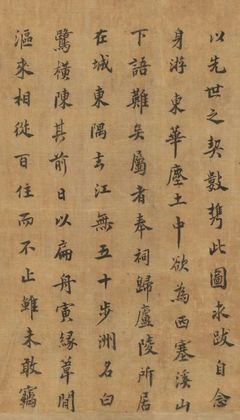 以先世之契數攜此圖求跋自念
身游東華塵土中欲為西塞溪山
下語難矣屬者奉祠歸廬陵所居
在城東隅去江無五十步洲名白
鷺橫陳其前日以扁舟寅緣葦間
漚來相從百住而不止雖未敢竊